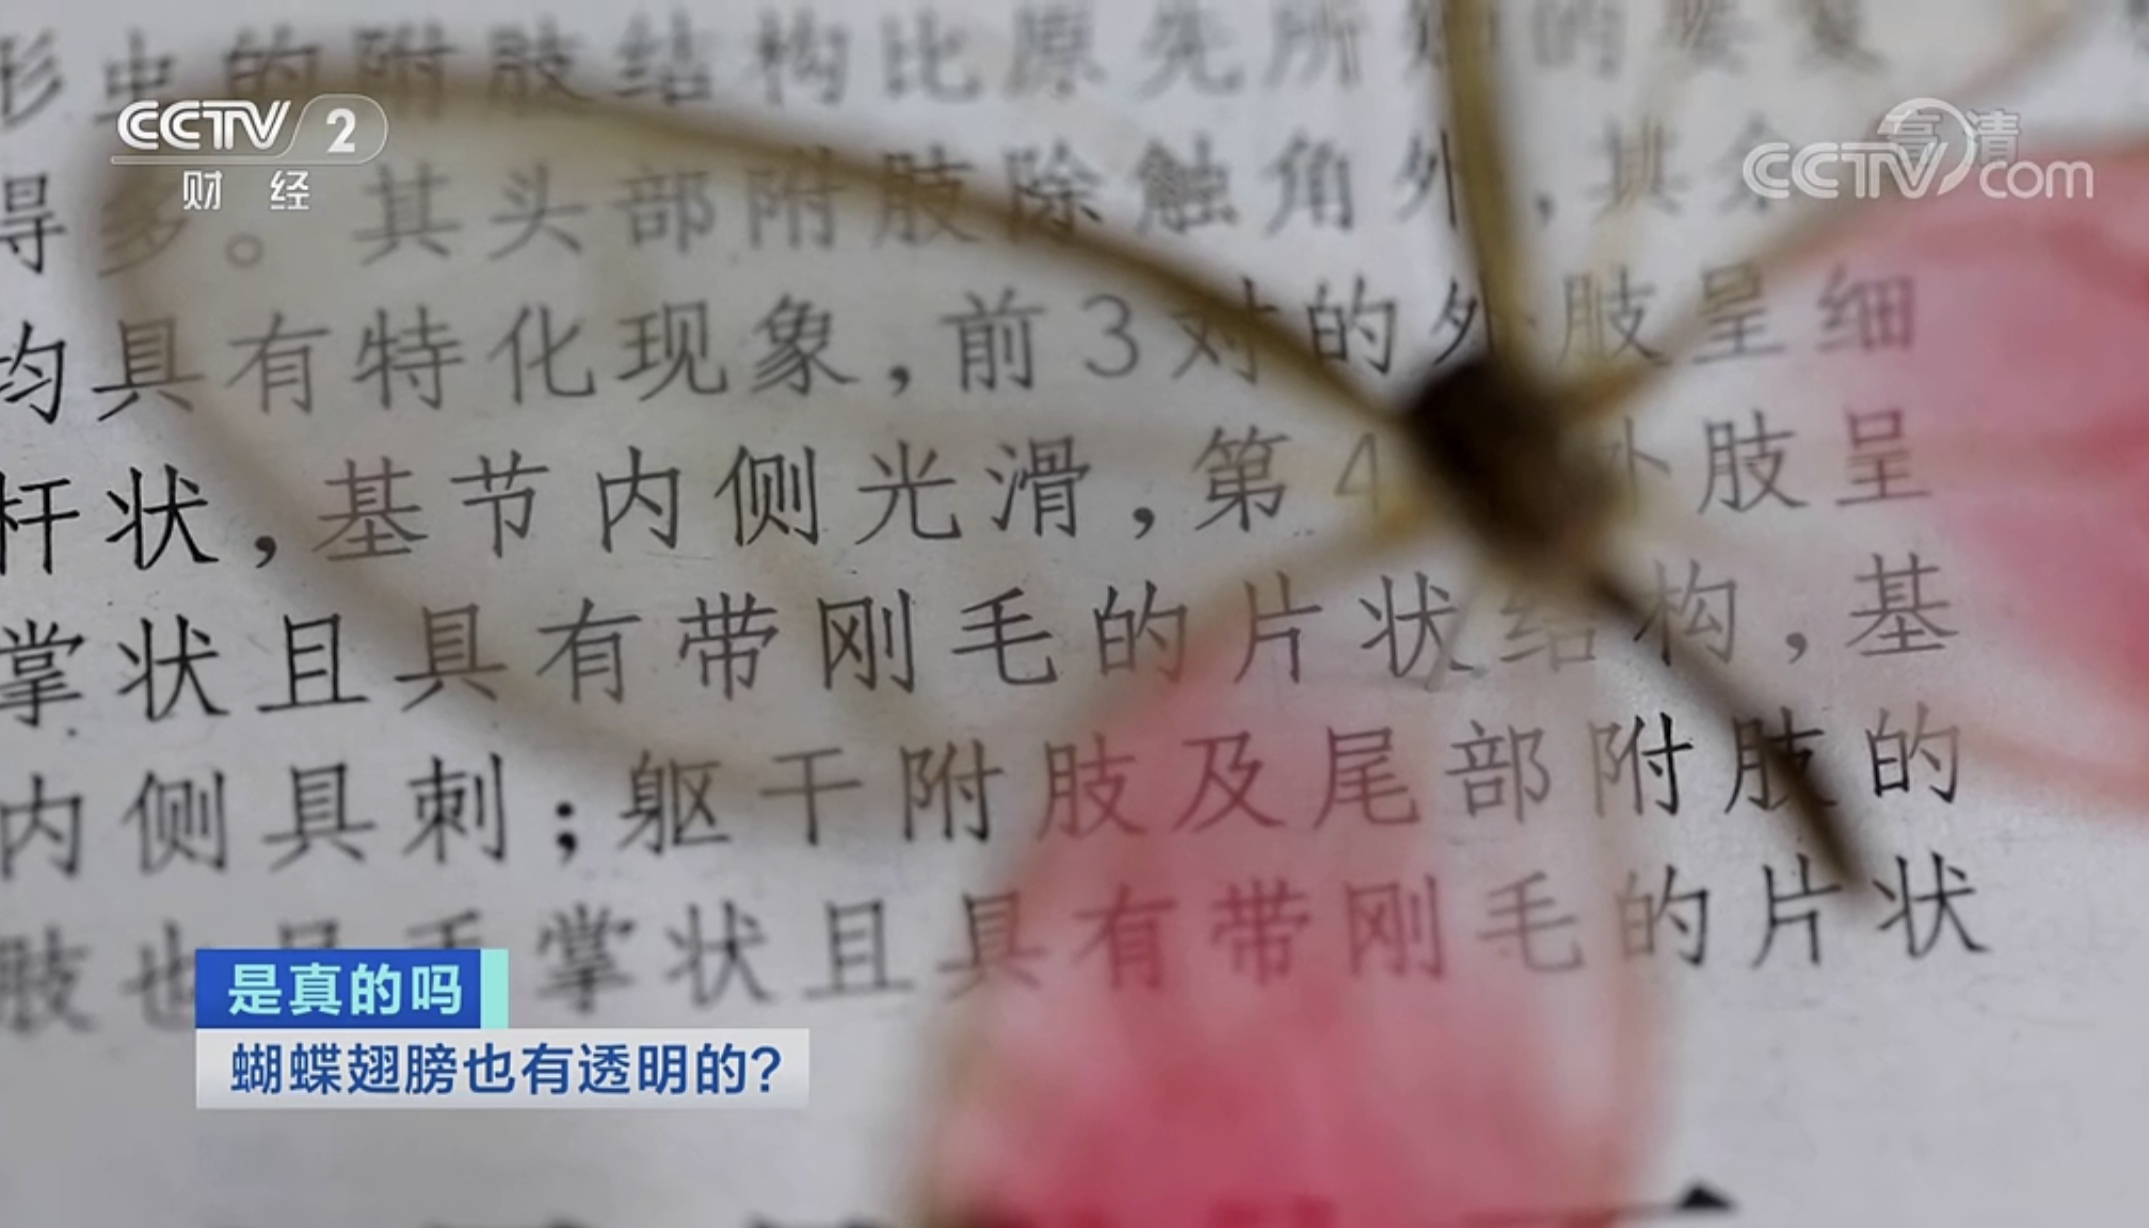 形虫的附肢结构比原先所 的要复
CCTV 2
财 经
高清
CCTV com
得多。其头部附肢除触角外,其余
均具有特化现象,前3对的外肢呈细
杆状,基节内侧光滑,第4 外肢呈
掌状且具有带刚毛的片状结构,基
内侧具刺;躯干附肢及尾部附肢的
肢也呈手掌状且具有带刚毛的片状
是真的吗
蝴蝶翅膀也有透明的?